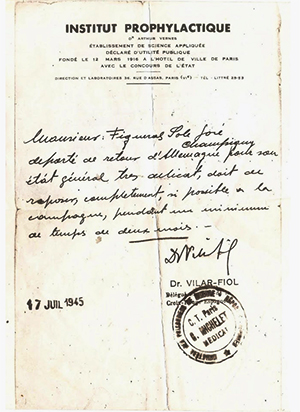 INSTITUT PROPHYLACTIQUE
Dr ARTHUR VERNES
ÉTABLISSEMENT DE SCIENCE APPLIQUÉE
DÉCLARÉ D'UTILITÉ PUBLIQUE
FONDÉ LE 12 MARS 1916 A L'HOTEL DE VILLE DE PARIS
AVEC LE CONCOURS DE L'ÉTAT
DIRECTION ET LABORATOIRES 36, RUE D'ASSAS, PARIS (VIe) - TÉL. LITTRÉ
Monsieur: Figueras Sole José
Champigny
deporté de retour d'Allemagne pour son
état général tres delicat, doit de
reposer, completement, si possible a la
campagne, pendant un minimum
de temps de deux mois.-
Dr. VILAR-FIOL
Délégué
17 JUIL 1945
C. T. Paris
MEDICAT